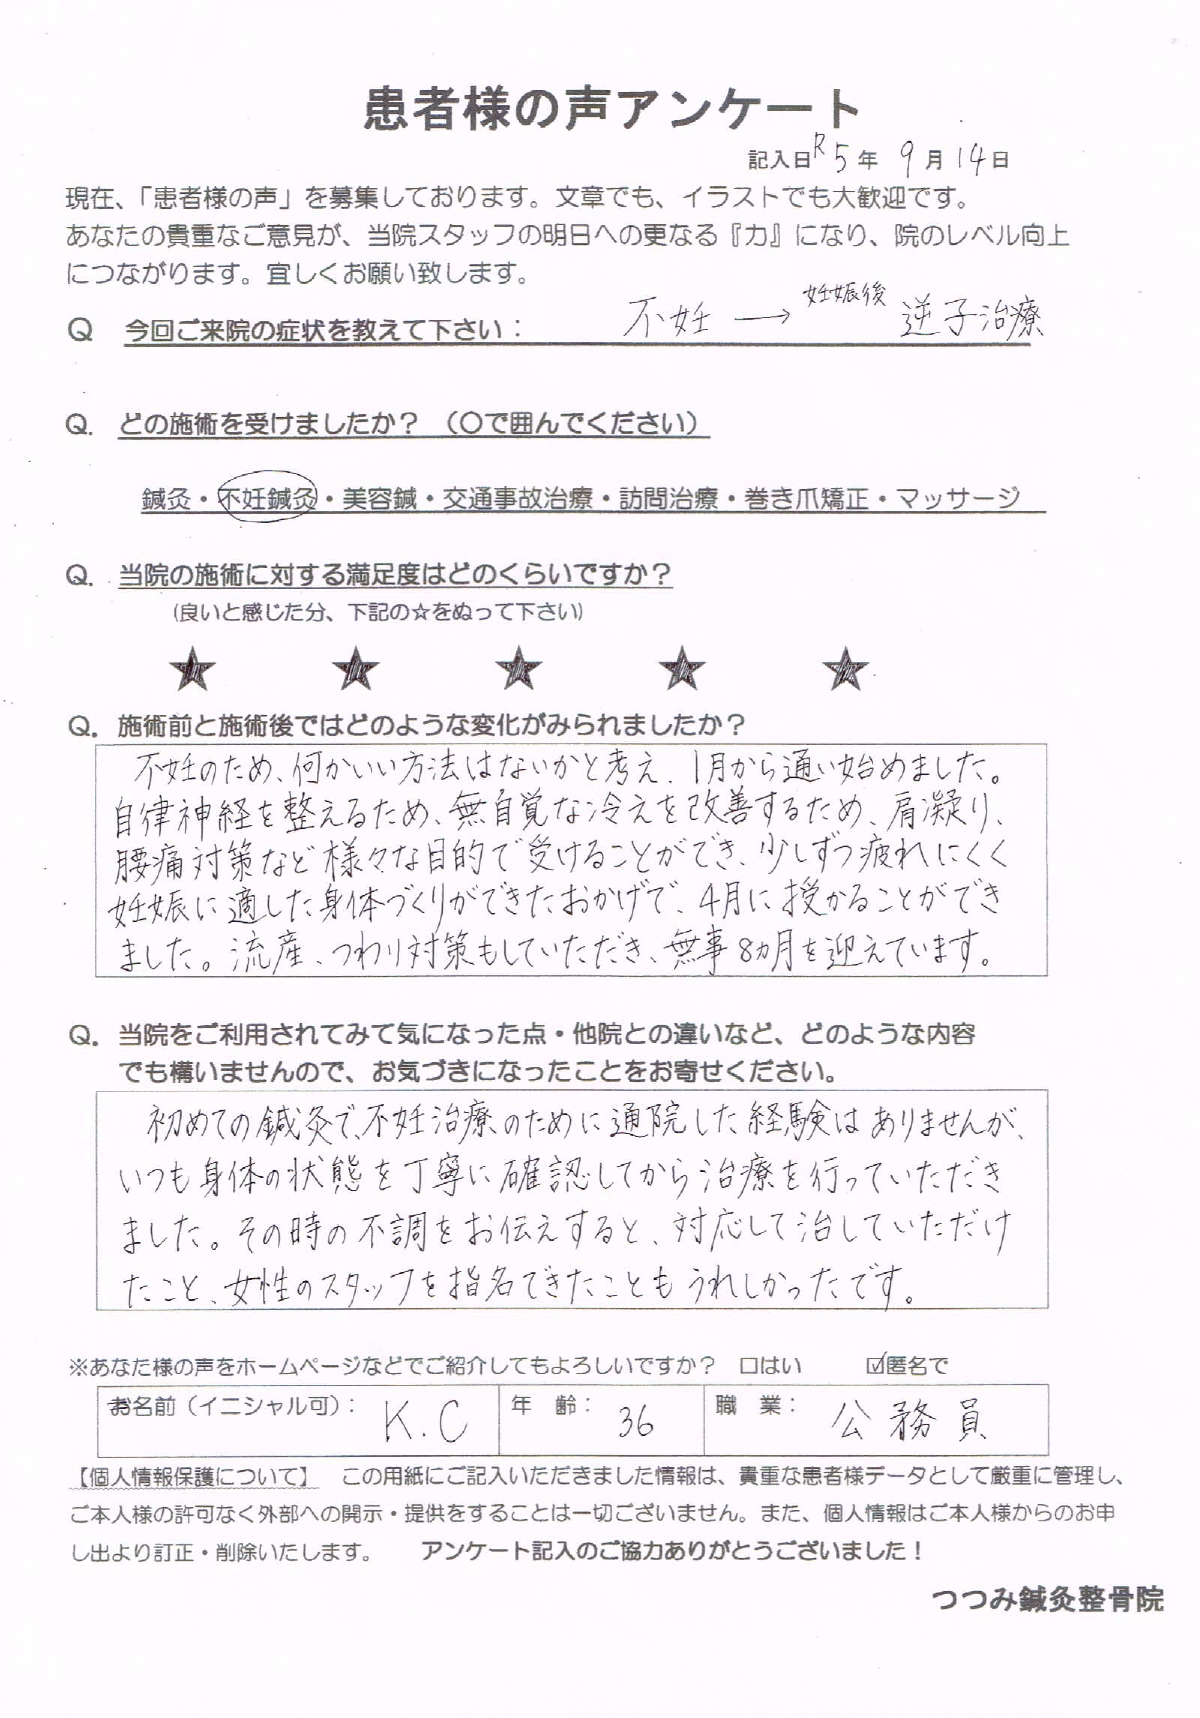 患者様の声アンケート
記入日R5年 9月14日
現在、「患者様の声」を募集しております。文章でも、イラストでも大歓迎です。
あなたの貴重なご意見が、当院スタッフの明日への更なる『力』になり、院のレベル向上
につながります。宜しくお願い致します。
Q 今回ご来院の症状を教えて下さい： 不妊 → 妊娠後 逆子治療
Q. どの施術を受けましたか？ （○で囲んでください）
鍼灸・不妊鍼灸・美容鍼・交通事故治療・訪問治療・巻き爪矯正・マッサージ
Q. 当院の施術に対する満足度はどのくらいですか？
(良いと感じた分、下記の☆をぬって下さい)
★ ★ ★ ★ ★
Q. 施術前と施術後ではどのような変化がみられましたか？
不妊のため、何かいい方法はないかと考え、1月から通い始めました。
自律神経を整えるため、無自覚な冷えを改善するため、肩凝り、
腰痛対策など様々な目的で受けることができ、少しずつ疲れにくく
妊娠に適した身体づくりができたおかげで、4月に授かることができ
ました。流産、つわり対策もしていただき、無事8ヵ月を迎えています。
Q. 当院をご利用されてみて気になった点・他院との違いなど、どのような内容
でも構いませんので、お気づきになったことをお寄せください。
初めての鍼灸で、不妊治療のために通院した経験はありませんが、
いつも身体の状態を丁寧に確認してから治療を行っていただき
ました。その時の不調をお伝えすると、対応して治していただけ
たこと、女性のスタッフを指名できたこともうれしかったです。
※あなた様の声をホームページなどでご紹介してもよろしいですか？ □はい ☑匿名で
お名前（イニシャル可）： K.C 年 齢： 36 職 業： 公務員
【個人情報保護について】 この用紙にご記入いただきました情報は、貴重な患者様データとして厳重に管理し、
ご本人様の許可なく外部への開示・提供をすることは一切ございません。また、個人情報はご本人様からのお申
し出より訂正・削除いたします。 アンケート記入のご協力ありがとうございました！
つつみ鍼灸整骨院